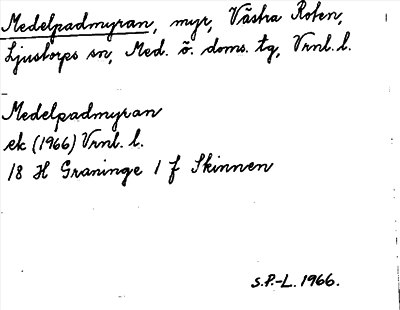 Medelpadmyran, myr, Västra Roten,
Ljustorps sn, Med. ö. doms. tg, Vrnl. l.
Medelpadmyran
ek (1966) Vrnl. l.
18 H Graninge 1 f Skinnen
S.P.-L. 1966.